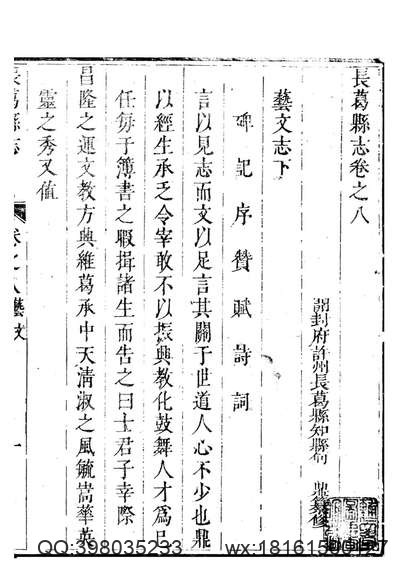 長葛縣志卷之八
開封府許州長葛縣知縣句 鼎纂修
藝文志下
碑記序贊賦詩詞
言以見志而文以足言其關于世道人心不少也鼎
以經生承乏令宰敢不以振興教化鼓舞人才爲已
任每于簿書之暇揖諸生而告之曰士君子幸際
昌隆之運文教方興維葛承中天清淑之風毓嵩華英
靈之秀又值
長葛縣志
卷之八藝文
一
QQ:398035233